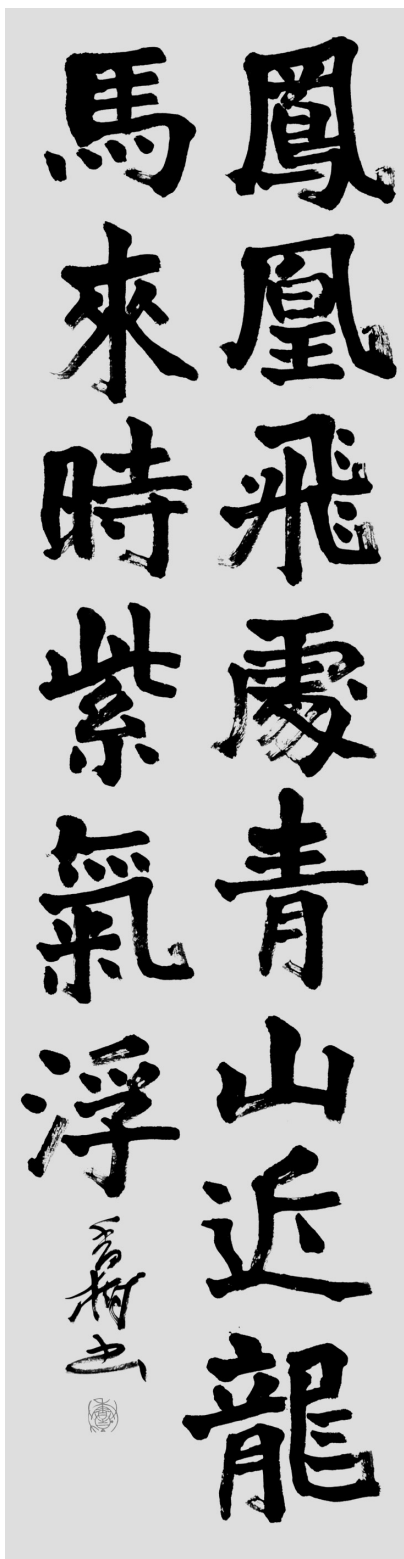 鳳凰飛處青山近龍
馬來時紫氣浮
書